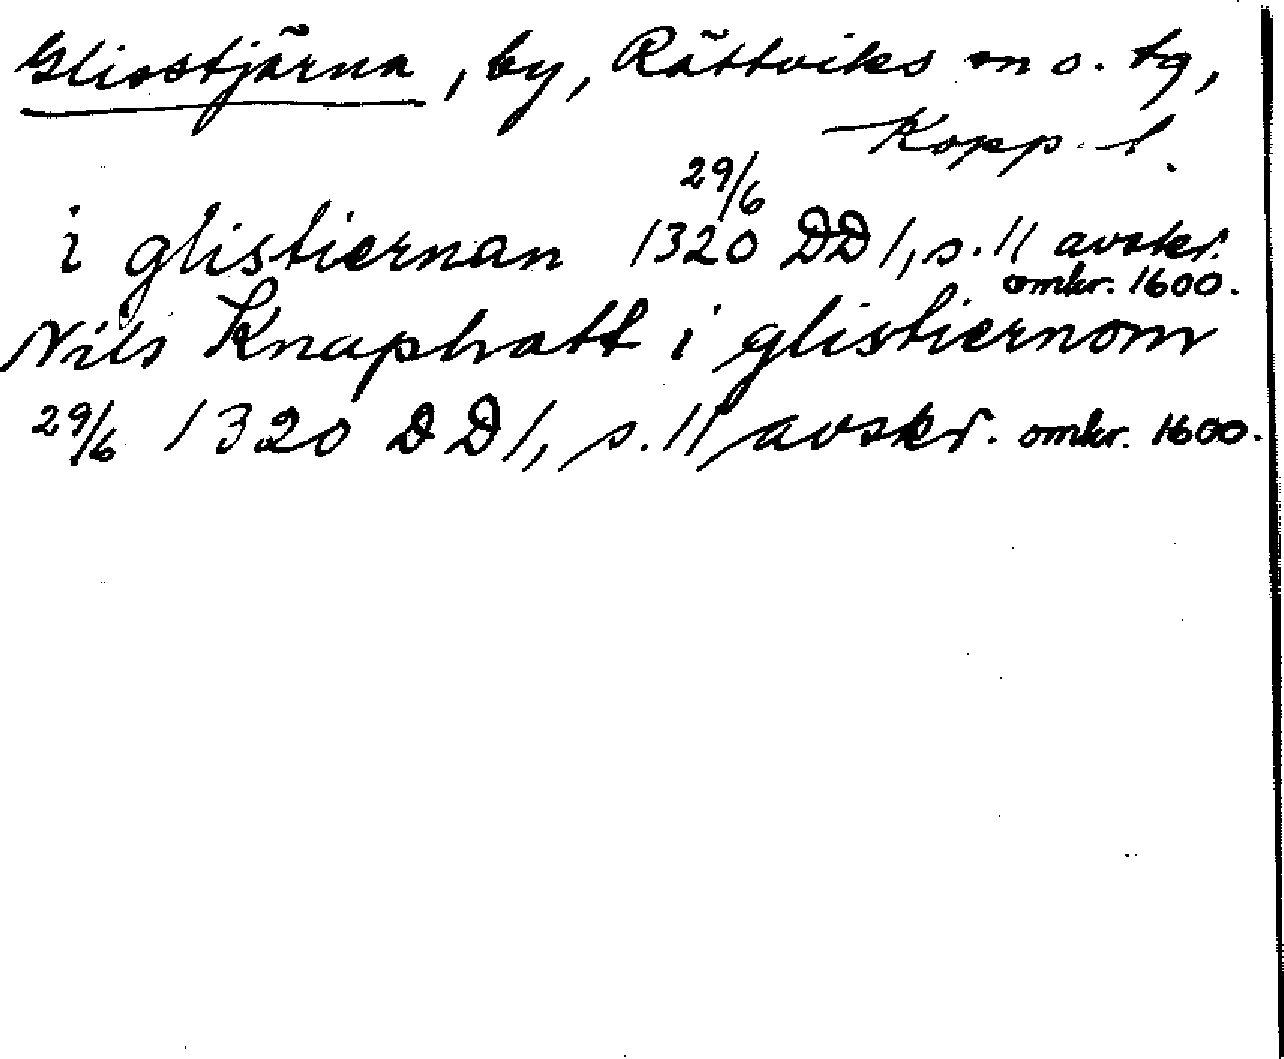 Glisstjärna, by, Rättviks sn o. tg,
Kopp. l.
i glistiernan 29/6 1320 DD 1, s. 11 avskr.
omkr. 1600.
Nils Knaphatt i glistiernom
29/6 1320 DD 1, s. 11 avskr. omkr. 1600.